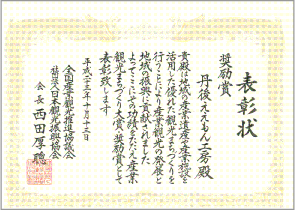 表彰状
奨励賞
丹後ええもん工房殿
貴殿は地域の産業遺産や産業施設を
活用した優れた観光まちづくりを
行うことにより産業観光の発展と
地域の振興に貢献されました
よってここにその功績をたたえ産業
観光まちづくり大賞の奨励賞として
表彰致します
平成二十三年十月十三日
全国産業観光推進協議会
社団法人日本観光振興協会
会長 西田厚聰